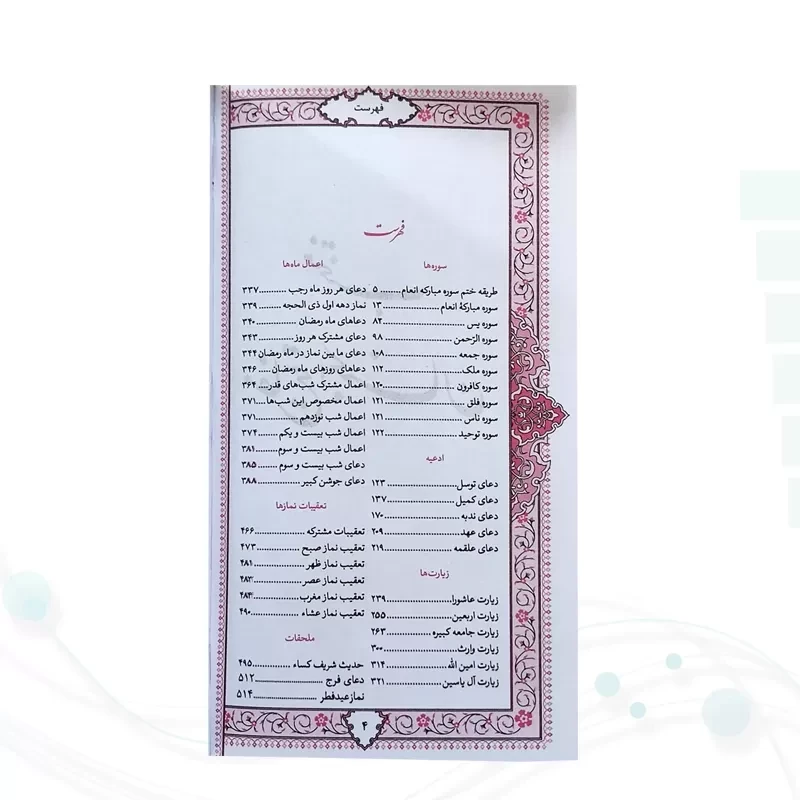 فهرست
فهرست
سوره‌ها
طریقه ختم سوره مبارکه انعام........ ۵
سوره مبارکهٔ انعام ........................ ۱۳
سوره یس .................................. ۸۲
سوره الرّحمن .............................. ۹۸
سوره جمعه .............................. ۱۰۸
سوره ملک................................ ۱۱۲
سوره کافرون ............................ ۱۲۰
سوره فلق ................................ ۱۲۱
سوره ناس ................................ ۱۲۱
سوره توحید .............................. ۱۲۲
ادعیه
دعای توسل.............................. ۱۲۳
دعای کمیل .............................. ۱۳۷
دعای ندبه ................................ ۱۷۰
دعای عهد ................................ ۲۰۹
دعای علقمه .............................. ۲۱۹
زیارت‌ها
زیارت عاشورا............................ ۲۳۹
زیارت اربعین............................ ۲۵۵
زیارت جامعه کبیره .................... ۲۶۳
زیارت وارث.............................. ۳۰۰
زیارت امین الله .......................... ۳۱۴
زیارت آل یاسین ........................ ۳۲۱
اعمال ماه‌ها
دعای هر روز ماه رجب ............ ۳۳۷
نماز دهه اول ذی الحجه ............ ۳۳۹
دعاهای ماه رمضان .................. ۳۴۰
دعای مشترک هر روز................ ۳۴۳
دعای ما بین نماز در ماه رمضان ۳۴۴
دعاهای روزهای ماه رمضان ...... ۳۴۶
اعمال مشترک شب‌های قدر.... ۳۶۴
اعمال مخصوص این شب‌ها...... ۳۷۱
اعمال شب نوزدهم .................. ۳۷۱
اعمال شب بیست و یکم .......... ۳۷۴
اعمال شب بیست و سوم .......... ۳۸۱
دعای شب بیست و سوم .......... ۳۸۵
دعای جوشن کبیر .................... ۳۸۸
تعقیبات نمازها
تعقیبات مشترکه ...................... ۴۶۶
تعقیب نماز صبح ...................... ۴۷۳
تعقیب نماز ظهر ........................ ۴۸۱
تعقیب نماز عصر ...................... ۴۸۳
تعقیب نماز مغرب...................... ۴۸۴
تعقیب نماز عشاء ...................... ۴۹۰
ملحقات
حدیث شریف کساء .................. ۴۹۵
دعای فرج .............................. ۵۱۲
نماز عید فطر ............................ ۵۱۴
۴